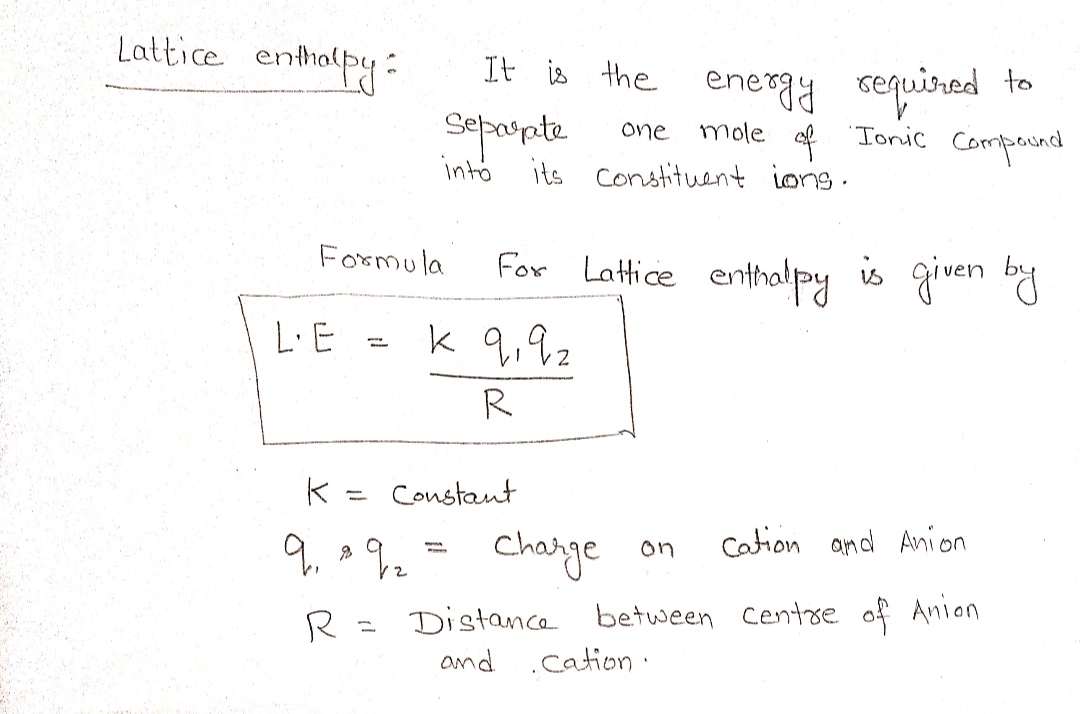 Lattice enthalpy: It is the energy required to
Separate one mole of Ionic Compound
into its Constituent ions.
Formula For Lattice enthalpy is given by
L.E = k q₁q₂
R
K = Constant
q₁ & q₂ = Charge on Cation and Anion
R = Distance between centre of Anion
and .cation.